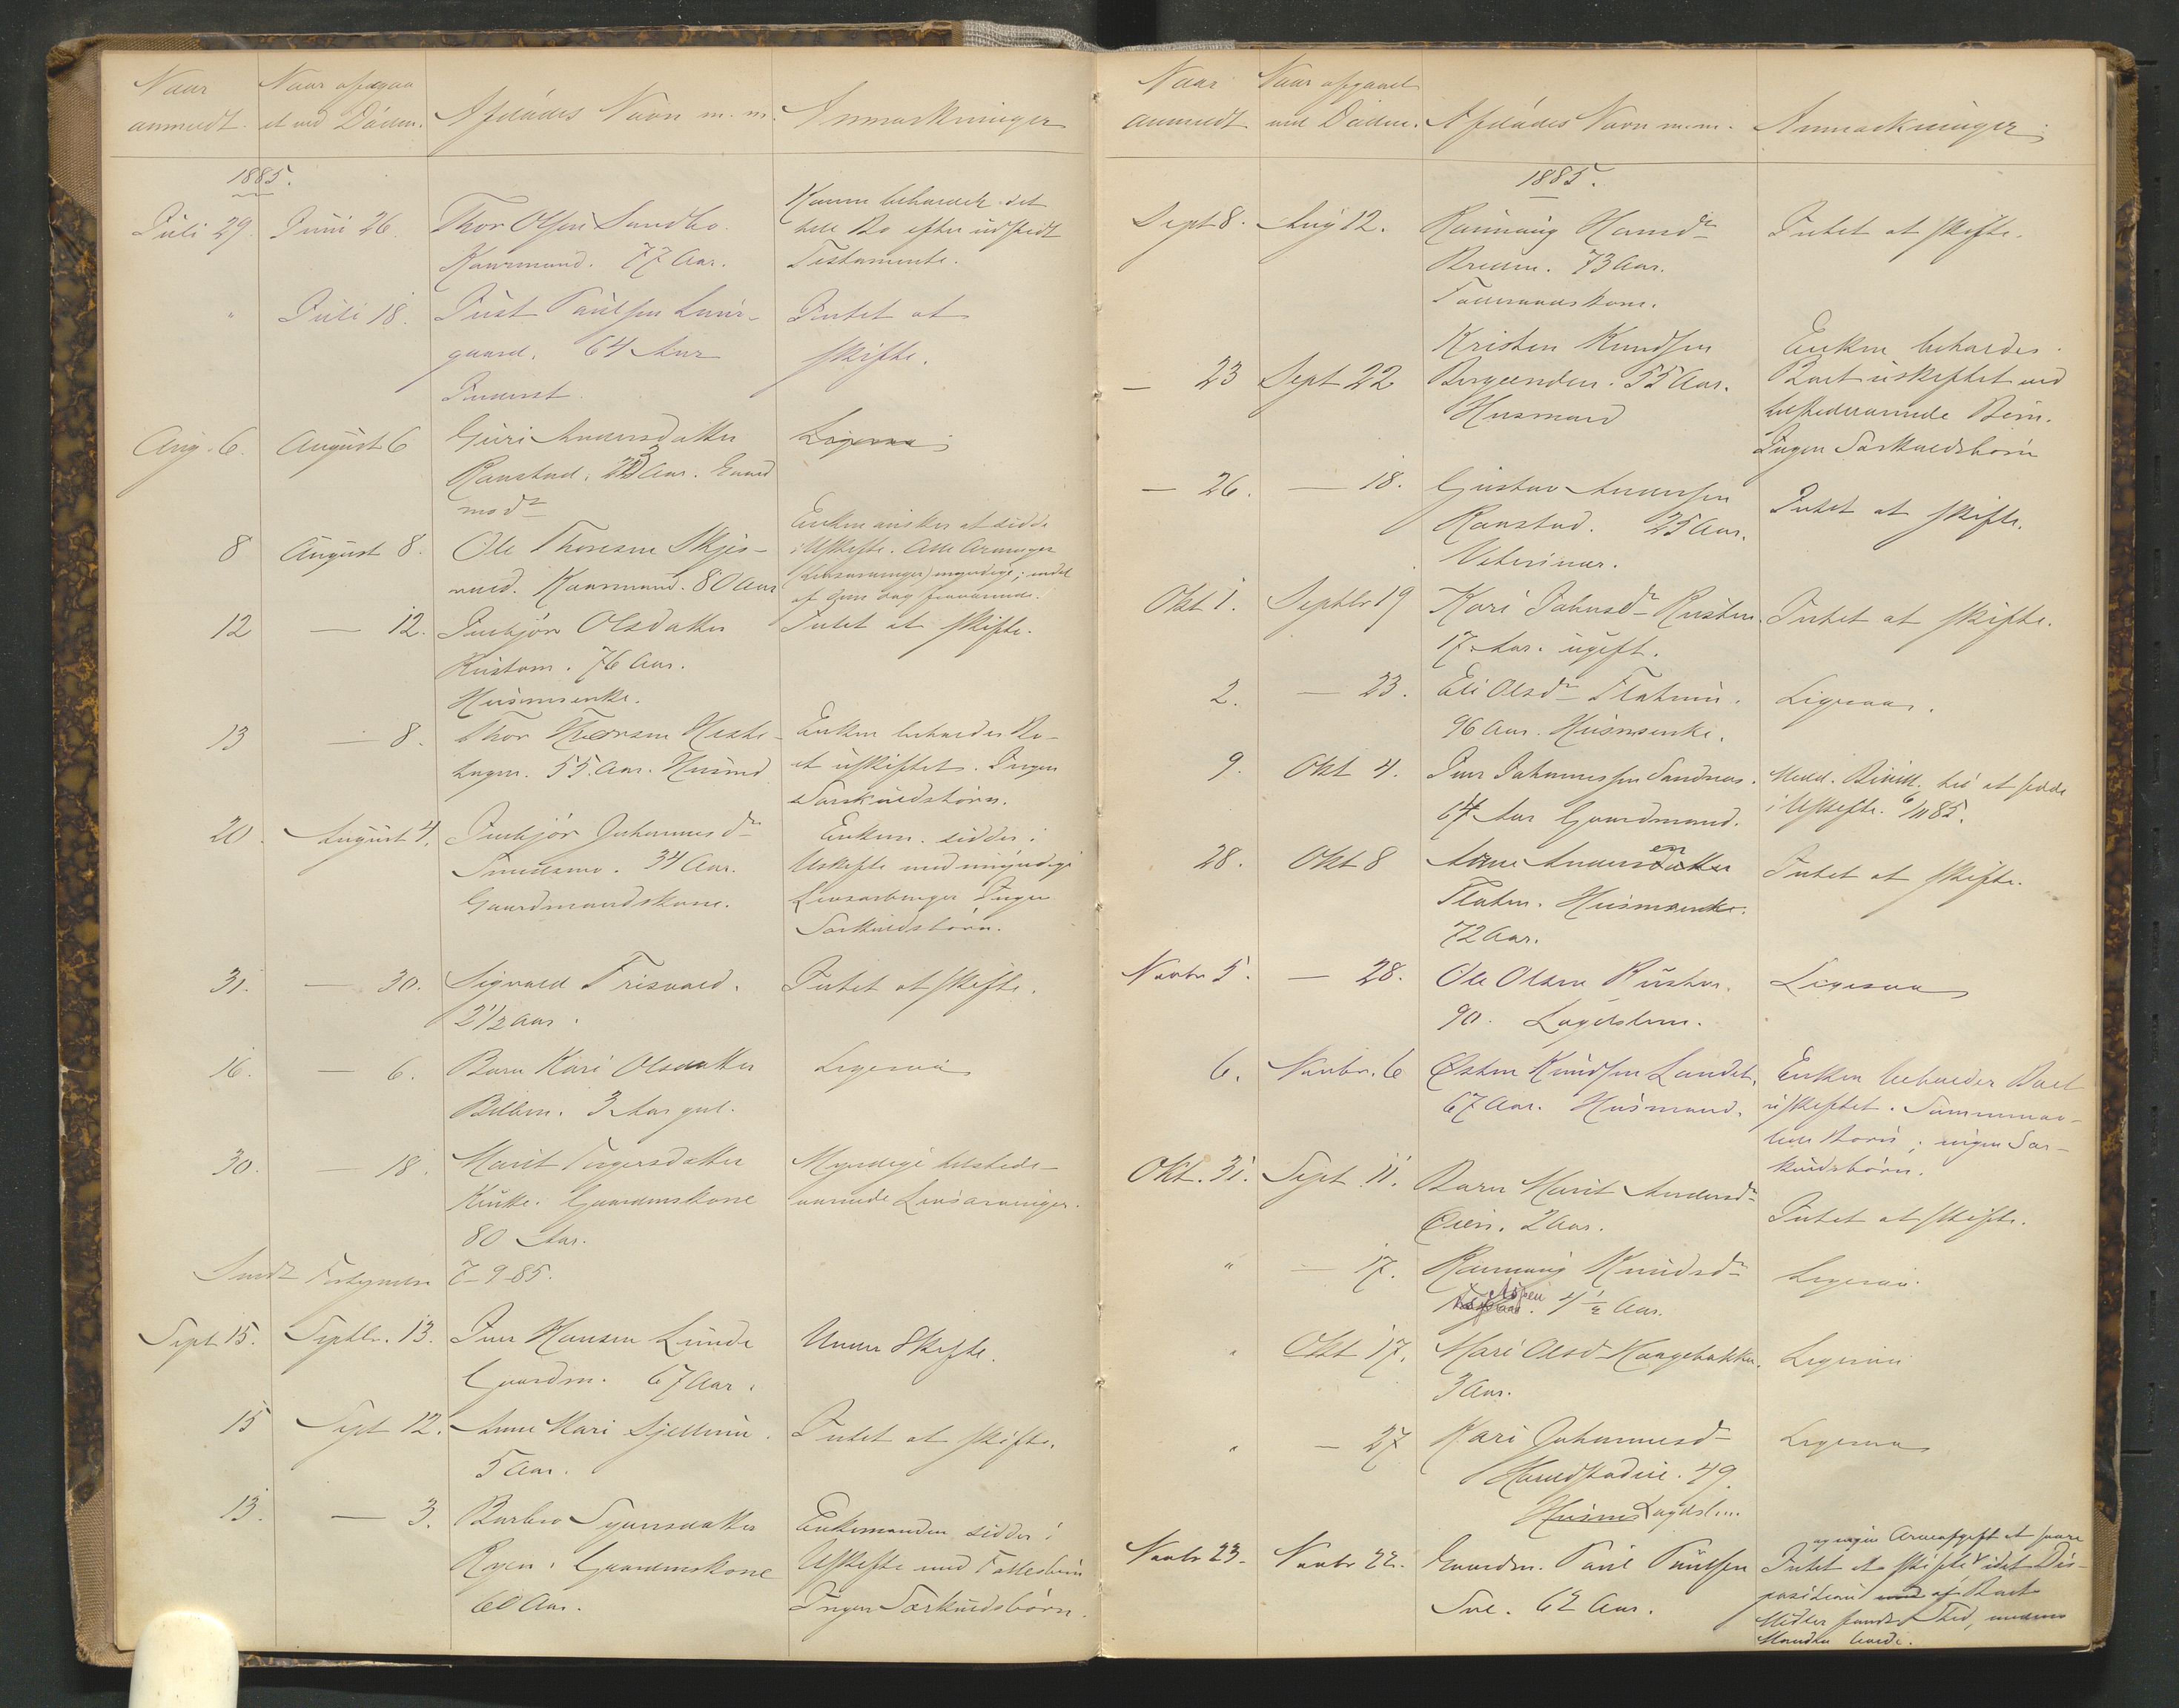 Naar
anmeldt.
Naar afgaa
et ved Døden.
Afdødes Navn m. m.
Anmærkninger
1885.
Juli 29. Juni 26. Thor Olsen Sundbo
Kaarmand. 77 Aar.
Konen beholder det
hele Bo efter udstedt
Testamente.
" Juli 18. Just Paulsen
gaard. 64 Aar
Inderst.
Intet at
skifte.
Aug. 6. August 6 Guri Andersdatter
Ranstad. Aar. Gaard
md
Ligesaa
8 August 8. Ole Thoresen Skjes-
vold. Kaarmand. 80 Aar
Enken ønsker at sidde
i Uskifte. Alle Arvinger
(Livsarvinger) myndige; endel
af dem dog fraværende.
12 — 12. Ingbjør Olsdatter
Rusten. 76 Aar.
Husmsenke.
Intet at skifte.
13 — 8. Thor Thorsen Heste-
hagen. 55 Aar. Husmd
Enken beholder Bo-
et uskiftet. Ingen
Særkuldsbørn.
20. August 4. Ingbjør Johannesdr
34 Aar.
Gaardmandskone.
sidder i
Uskifte med umyndige
Livsarvinger Ingen
Særkuldsbørn.
31. — 30. Sigvald Frisvold.
2 1/2 Aar.
Intet at skifte.
16. — 6. Barn Kari Olsdatter
3 Aar gml.
Ligesaa
30. — 18. Marit
Gaardmskone
80 Aar.
Myndige tilstede-
værende Livsarvinger.
Sendt Fortegnelse 7-9-85.
Sept 15. Septbr. 13. Iver Hansen Lunde
Gaardm. 67 Aar.
Under Skifte.
15 Sept 12. Anne Mari
5 Aar.
Intet at skifte.
13. — 3. Barbro Syversdatter
Gaardmskone
60 Aar.
Enkemanden sidder i
Uskifte med Fællesbørn
Ingen Særkuldsbørn.
Naar
anmeldt
Naar afgaaet
ved Døden.
Afdødes Navn m.m.
Anmærkninger
1885.
Sept 8. Aug 12. Rønnaug Hansdr
73 Aar.
Intet at skifte.
— 23 Sept 22 Kristen Knudsen
55 Aar.
Husmand
Enken beholder
Boet uskiftet med
tilstedeværende Børn.
Ingen Særkuldsbørn
— 26. — 18. Gustav Andersen
Ranstad. 25 Aar.
Veterinær.
Intet at skifte.
Okt 1. Septbr 19 Kari Johnsdr Rusten.
17 Aar. ugift.
Intet at skifte.
2. — 23. Eli Olsdr
96 Aar. Husmsenke.
Ligesaa.
9. Okt 4. Iver Johannessen Sandnes.
67 Aar Gaardmand.
Medd. Bevill. til at sidde
i Uskifte. 6/11 85.
28. Okt 8 Arne Andersen
Flaten. Husmsenke.
72 Aar.
Intet at skifte.
Novbr 5. — 28. Ole Olsen Rusten.
90. Lægdslem.
Ligesaa
6. Novbr. 6 Østen Knudsen Landet.
67 Aar. Husmand.
Enken beholder Boet
uskiftet. Sammenav-
lede Børn; ingen Sær-
kuldsbørn.
Okt. 31. Sept. 11. Barn Marit Andersdr
Øien. 2 Aar.
Intet at skifte.
" — 17. Rønnaug Knudsdr
4 1/2 Aar.
Ligesaa.
" Okt 17. Mari Olsd Haagebakken.
3 Aar.
Ligesaa
" — 27 Kari Johannesd
49.
Husms Lægdslem
Ligesaa
Novbr 23. Novbr 22. Gaardm. Paul Paulsen
Sve. 62 Aar.
og ingen Arveafgift at svare
Intet at skifte idet Dis-
position af Boets
Midler fandt Sted, medens
Manden levede.